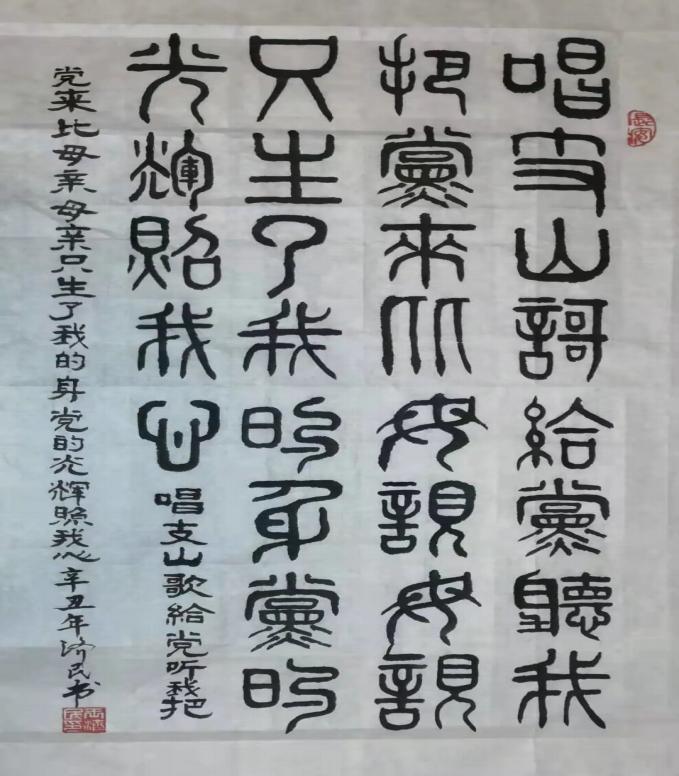 唱支山歌給黨聽我
把黨來比母親母親
只生了我的身黨的
光輝照我心
唱支山歌給党听我把
党来比母亲母亲只生了我的身党的光辉照我心辛丑年济民书